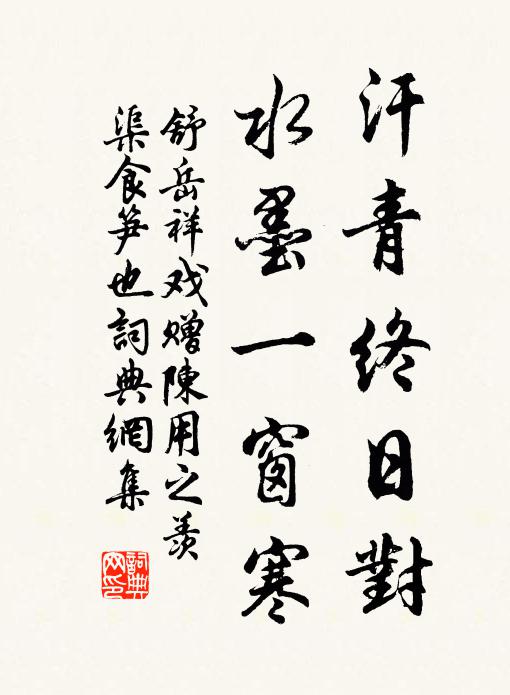 汗青終日對
水墨一窗寒
舒岳祥戏贈陳用之羨
渠食笋也詞典網集
詞典
网印